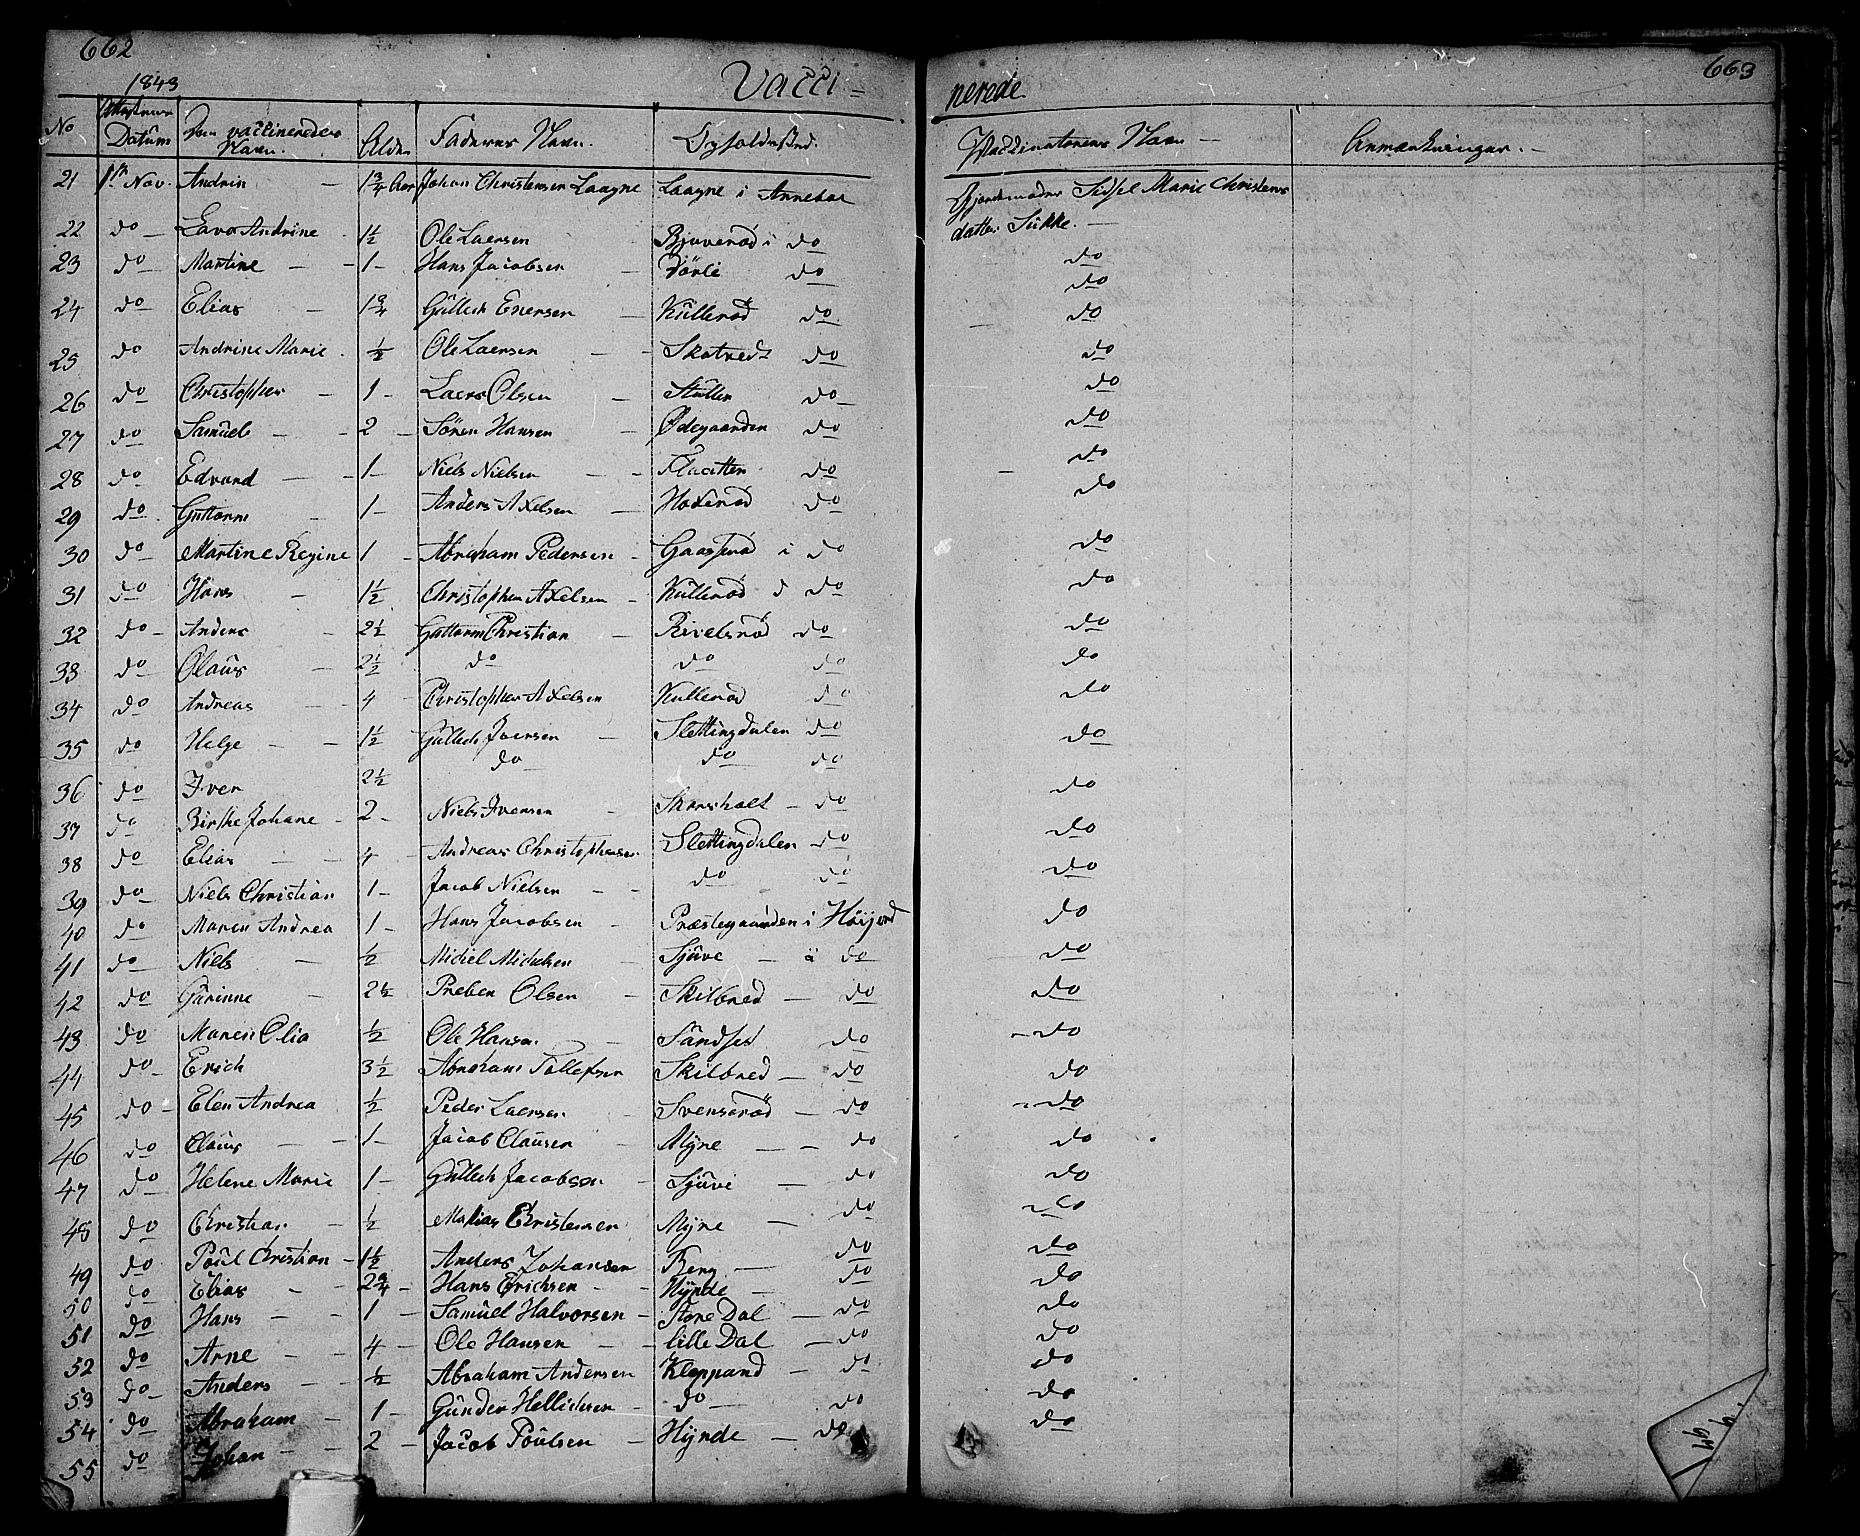 662
663
1843
Vacci-
nerede
No Attestens Datum Den vaccineredes Navn. Alder Faderens Navn. Opholdssted. Vaccinatorens Navn Anmærkninger.
21 1ste Nov. Andrin 1 3/4 Aar Johan Christensen Laagne Laagne i Anneboe Gjordemoder Sidsel Marie Christens
datter Sukke.
22 do Lava Andrine 1 1/2 Ole Laersen Bjuverød i do
23 do Martine 1 Hans Jacobsen Dørli do do
24 do Elias 1 3/4 Gullech Enersen Kullerød do do
25 do Andrine Marie 1/2 Ole Laersen Skatvedt do do
26 do Christopher 1 Laers Olsen Stullen do do
27 do Samuel 2 Søren Hansen Ødegaarden do do
28 do Edvard 1 Niels Nielsen Flaatten do do
29 do Guttorm 1 Anders Axelsen Hoxerød do do
30 do Martine Regine 1 Abraham Pedersen Gaaserød i do do
31 do Hans 1 1/2 Christopher Axelsen Kullerød do do
32 do Anders 2 1/2 Guttorm Christian Rivelsrød do do
33 do Olaus 2 1/2 do do do do
34 do Andreas 4 Christopher Axelsen Kullerød do do
35 do Helge 1 1/2 Gullech Iversen Slettingdalen do do
36 do Iver 2 1/2 do do do do
37 do Birthe Johane 2 Niels Iversen Skorsholt do do
38 do Elias 4 Andreas Christophersen Slettingdalen do do
39 do Niels Christian 1 Jacob Nielsen do do do
40 do Maren Andrea 1 Hans Jacobsen Præstegaarden i Høijord do
41 do Niels 1/2 Michel Michelsen Sjuve i do do
42 do Garinne 2 1/2 Preben Olsen Skilbred do do
43 do Maren Olia 1/2 Ole Hansen Sandset do do
44 do Erich 3 1/2 Abraham Tollefsen Skilbred do do
45 do Elen Andrea 1/2 Peder Laersen Svenserød do do
46 do Claus 1 Jacob Clausen Myne do do
47 do Helene Marie 1 Gullech Jacobsen Sjuve do do
48 do Christian 1/2 Mathias Christensen Myne do do
49 do Poul Christian 1 1/2 Anders Johansen Berg do do
50 do Elias 2 3/4 Hans Erichsen Hynde do do
51 do Hans 1 Samuel Halvorsen Store Dal do do
52 do Arne 4 Ole Hansen lille Dal do do
53 do Anders 1/2 Abraham Andersen Kleppand do do
54 do Abraham 1 Gunder Hellichsen do do do
55 do Johan 2 Jacob Poulsen Hynde do do